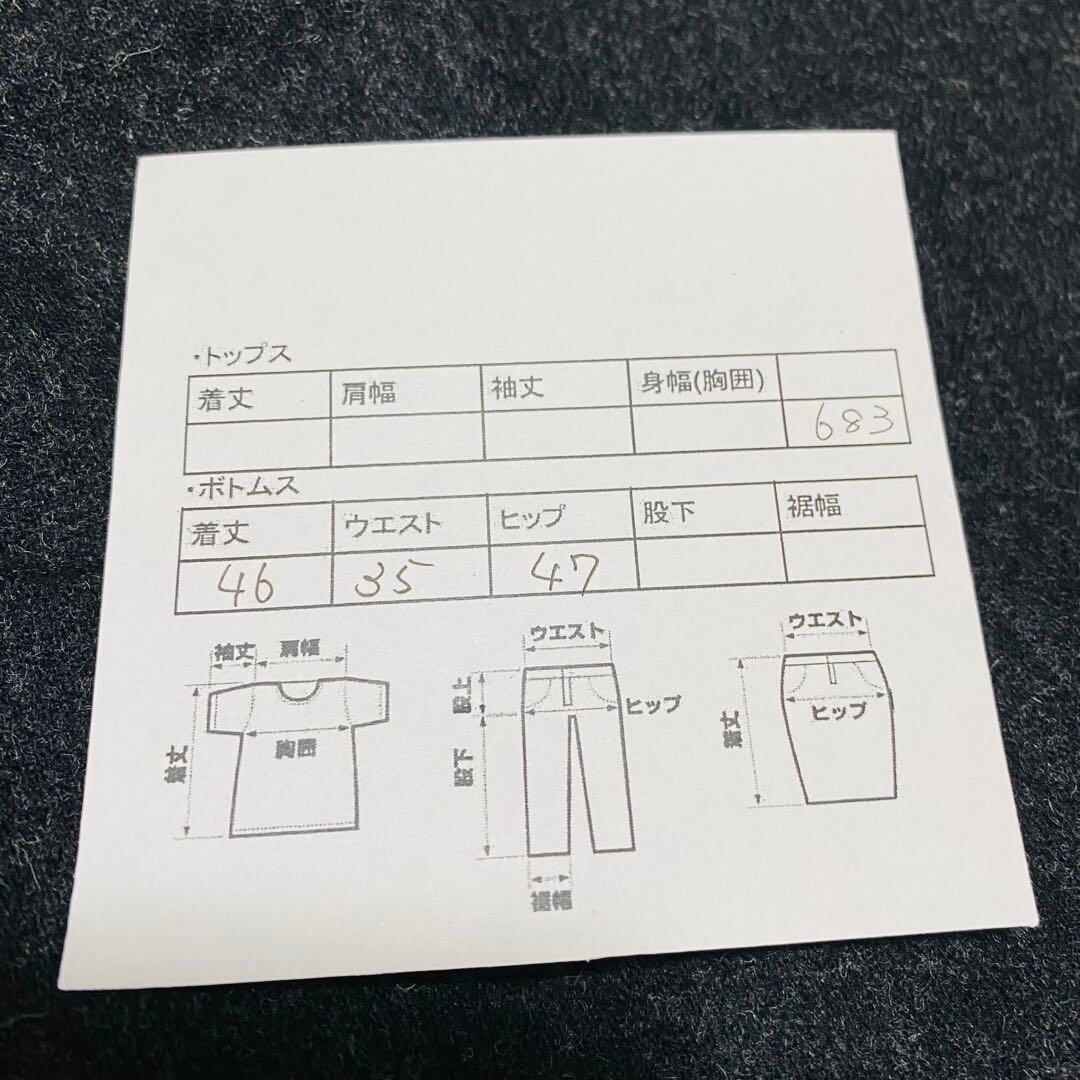 ・トップス
着丈 肩幅 袖丈 身幅(胸囲)
683
・ボトムス
着丈 ウエスト ヒップ 股下 裾幅
46 35 47
袖丈 肩幅
胸囲
着丈
ウエスト
股上
ヒップ
股下
裾幅
ウエスト
ヒップ
着丈